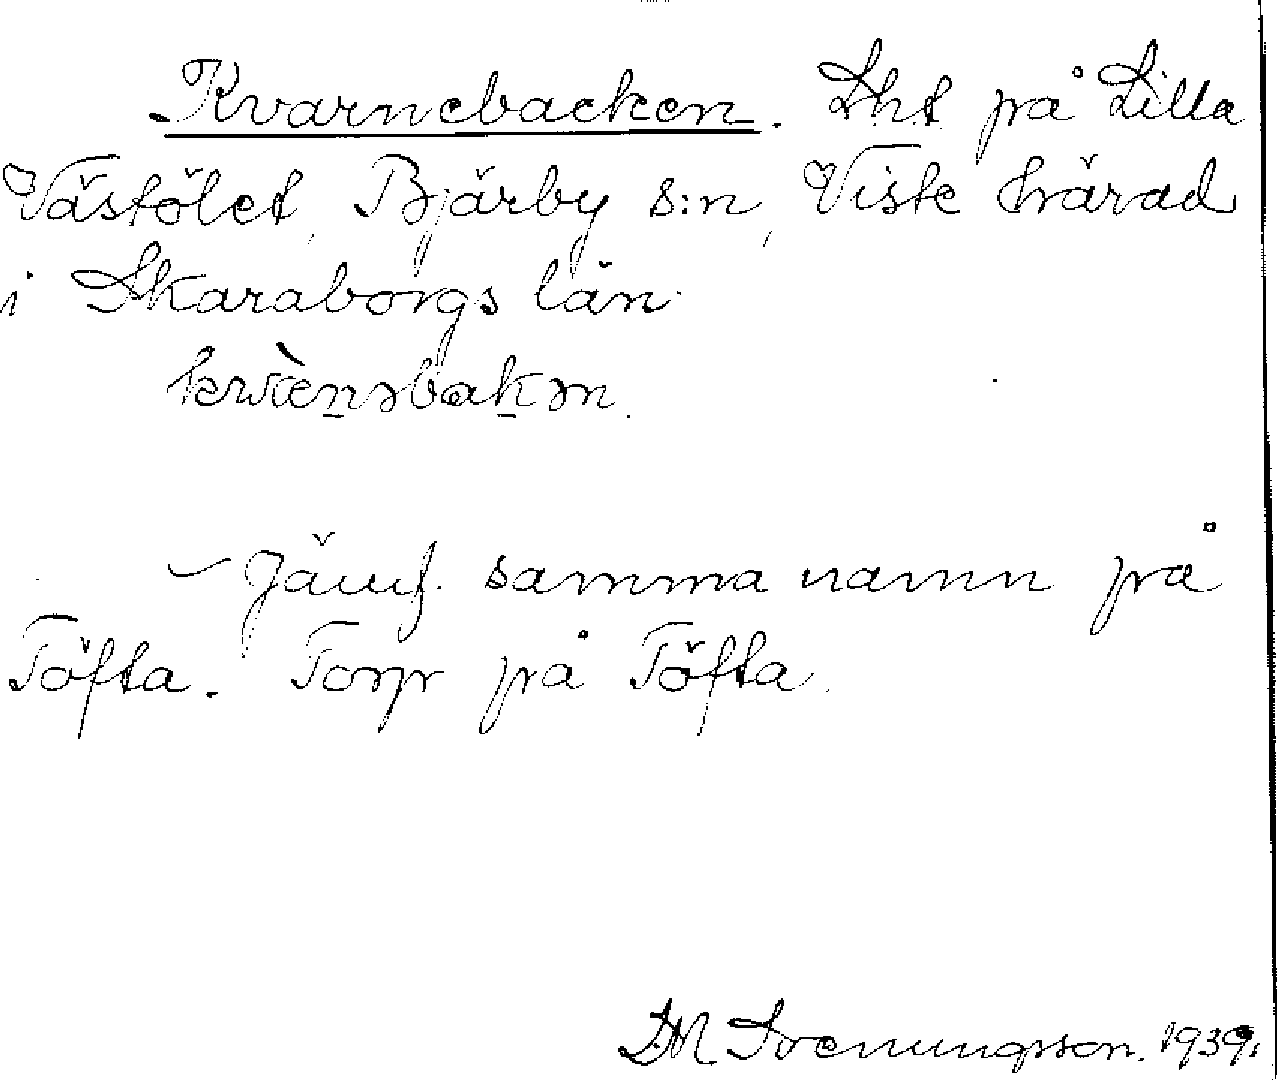 Kvarnebacken. Lht på Lilla
Västölet, Bjärby s:n, Viste härad
i Skaraborgs län.
kwæ̀ṇəbaḵən.
– Jämf. samma namn på
Töfta. Torp på Töfta.
DM Svenungsson. 1939.